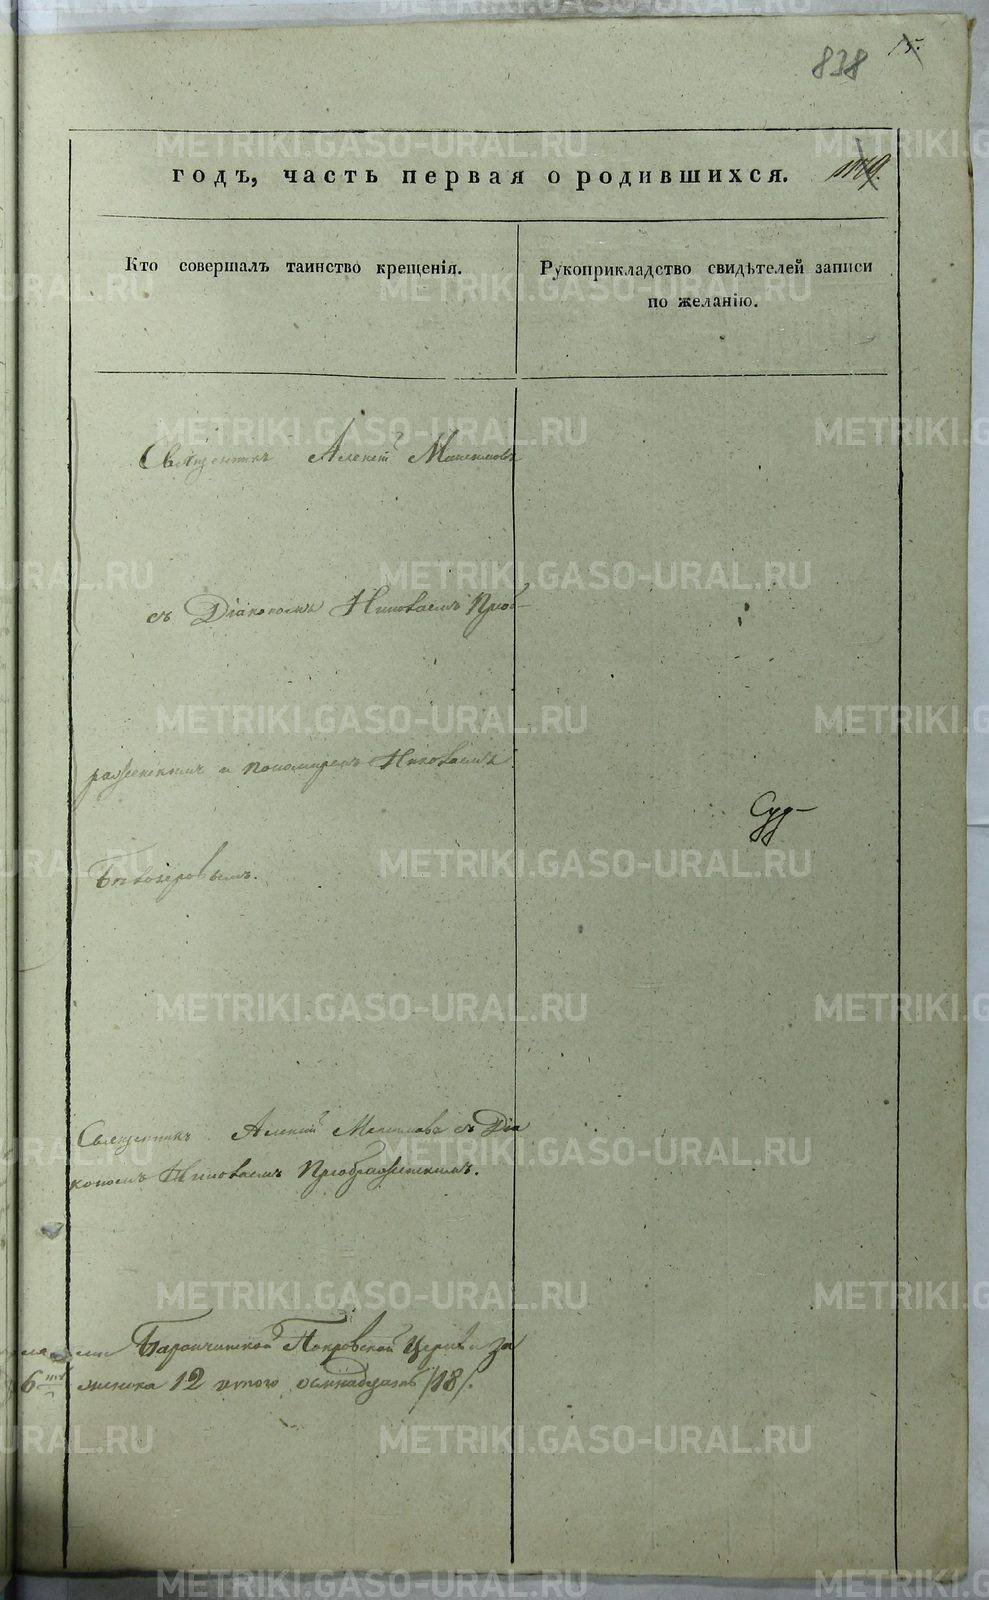 838 15.
годъ, часть первая о родившихся.
Кто совершалъ таинство крещенія.
Рукоприкладство свидѣтелей записи
по желанію.
Священникъ Алексій Максимовъ
съ Діакономъ Николаемъ Преоб-
раженскимъ и пономаремъ Николаемъ
Бѣлозеровымъ.
Суд-
Священникъ Алексій Максимовъ съ Діа
кономъ Николаемъ Преображенскимъ.
Баранчинской Покровской Церкви за
6 женска 12 итого осмнадцать /18/.
METRIKI.GASO-URAL.RU